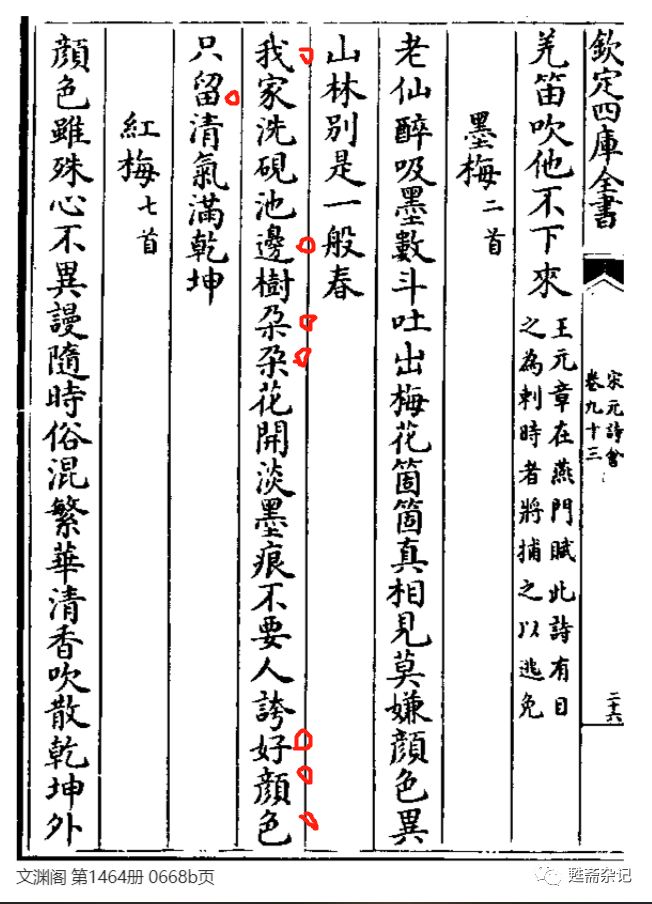 欽定四庫全書
宋元詩會
卷九十三
二十六
羌笛吹他不下來
王元章在燕門賦此詩有目
之為刺時者將捕之以逃免
墨梅二首
老仙醉吸墨數斗吐出梅花箇箇真相見莫嫌顔色異
山林別是一般春
我家洗硯池邊樹朶朶花開淡墨痕不要人誇好顔色
只留清氣滿乾坤
紅梅七首
顔色雖殊心不異謾隨時俗混繁華清香吹散乾坤外
文渊阁 第1464册 0668b页
甦斋杂记